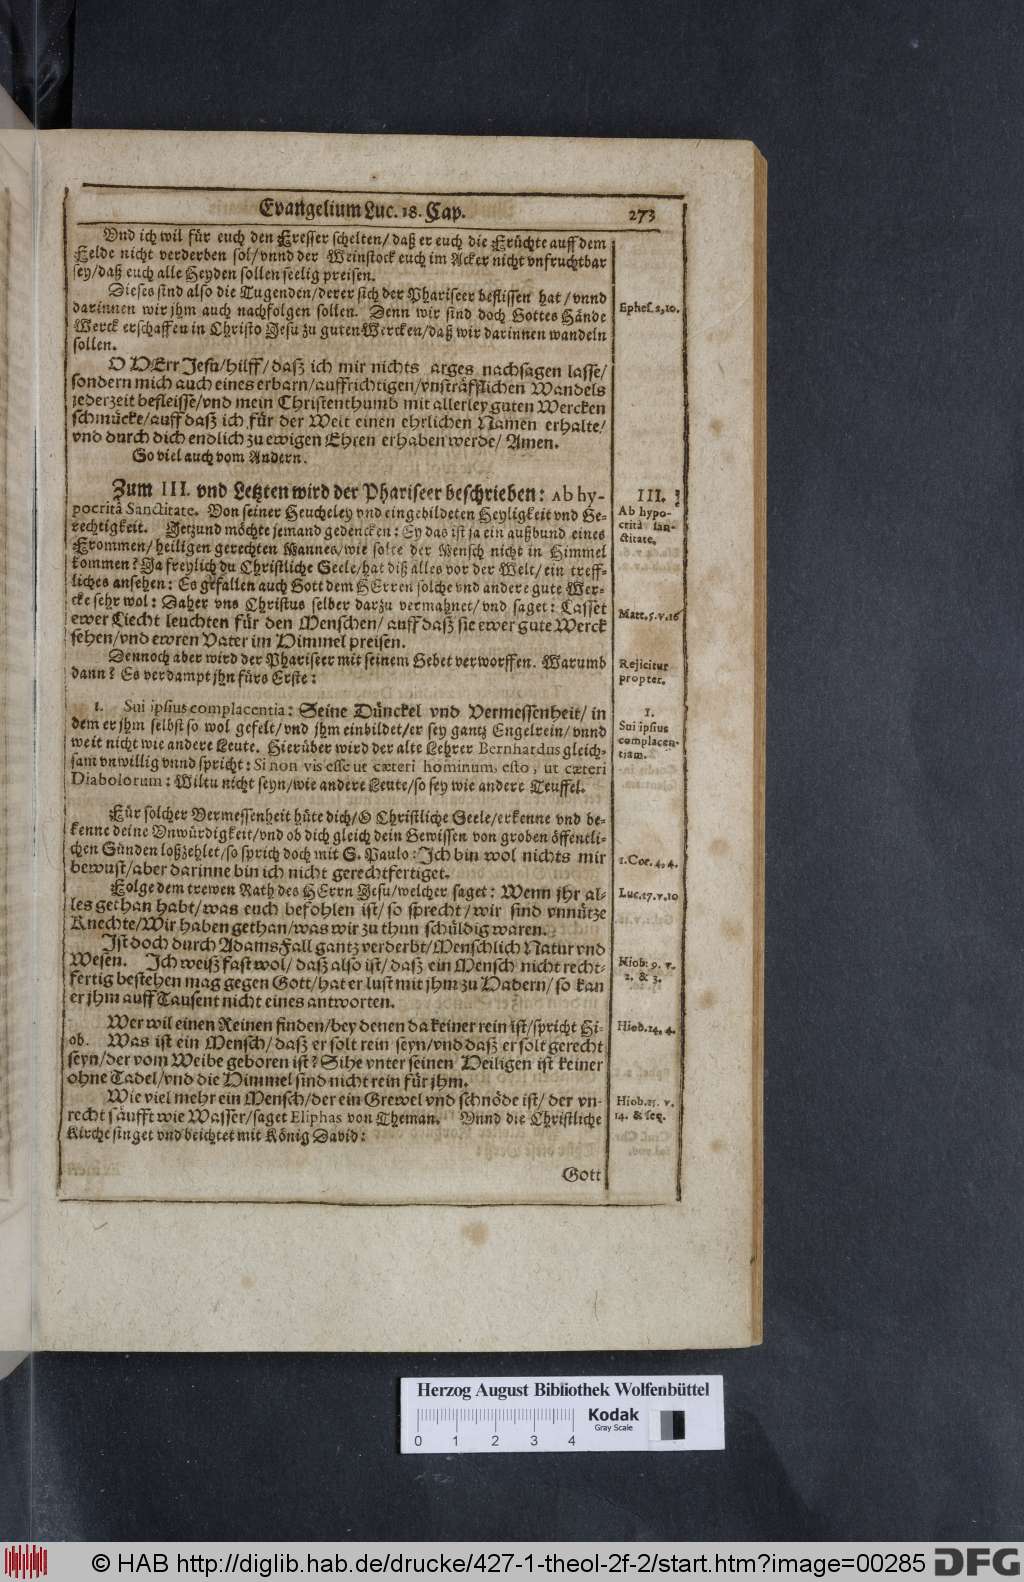 Evangelium Luc. 18. Cap. 273
Vnd ich wil für euch den Fresser schelten/ daß er euch die Früchte auff dem
Felde nicht verderben sol/ vnnd der Weinstock euch im Acker nicht vnfruchtbar
sey/ daß euch alle Heyden sollen seelig preisen.
Dieses sind also die Tugenden/ derer sich der Phariseer beflissen hat/ vnnd
darinnen wir jhm auch nachfolgen sollen. Denn wir sind doch Gottes Hände
Werck erschaffen in Christo Jesu zu guten Wercken/ daß wir darinnen wandeln
sollen.
Ephes. 2, 10.
O HErr Jesu/ hilff/ daß ich mir nichts arges nachsagen lasse/
sondern mich auch eines erbarn/ auffrichtigen/ vnsträfflichen Wandels
jederzeit befleisse/ vnd mein Christenthumb mit allerley guten Wercken
schmücke/ auff daß ich für der Welt einen ehrlichen Namen erhalte/
vnd durch dich endlich zu ewigen Ehren erhaben werde/ Amen.
So viel auch vom Andern.
Zum III. vnd Letzten wird der Phariseer beschrieben: Ab hy-
pocritâ Sanctitate. Von seiner Heucheley vnd eingebildeten Heyligkeit vnd Ge-
rechtigkeit. Jetzund möchte jemand gedencken: Ey das ist ja ein außbund eines
Frommen/ heiligen gerechten Mannes/ wie solte der Mensch nicht in Himmel
kommen? Ja freylich du Christliche Seele/ hat diß alles vor der Welt/ ein treff-
liches ansehen: Es gefallen auch Gott dem HErren solche vnd andere gute Wer-
cke sehr wol: Daher vns Christus selber darzu vermahnet/ vnd saget: Lasset
ewer Liecht leuchten für den Menschen/ auff daß sie ewer gute Werck
sehen/ vnd ewren Vater im Himmel preisen.
III.
Ab hypo-
critâ san-
ctitate.
Matt. 5. v. 16
Dennoch aber wird der Phariseer mit seinem Gebet verworffen. Warumb
dann? Es verdampt jhn fürs Erste:
Rejicitur
propter.
1. Sui ipsius complacentia: Seine Dünckel vnd Vermessenheit/ in
dem er jhm selbst so wol gefelt/ vnd jhm einbildet/ er sey gantz Engelrein/ vnnd
weit nicht wie andere Leute. Hierüber wird der alte Lehrer Bernhardus gleich-
sam vnwillig vnnd spricht: Si non vis esse ut cæteri hominum, esto, ut cæteri
Diabolorum: Wiltu nicht seyn/ wie andere Leute/ so sey wie andere Teuffel.
1.
Sui ipsius
complacen-
tiam.
Für solcher Vermessenheit hüte dich/ O Christliche Seele/ erkenne vnd be-
kenne deine Vnwürdigkeit/ vnd ob dich gleich dein Gewissen von groben öffentli-
chen Sünden loßzehlet/ so sprich doch mit S. Paulo: Ich bin wol nichts mir
bewust/ aber darinne bin ich nicht gerechtfertiget.
1. Cor. 4, 4.
Folge dem trewen Rath des HErrn Jesu/ welcher saget: Wenn jhr al-
les gethan habt/ was euch befohlen ist/ so sprecht/ wir sind vnnütze
Knechte/ Wir haben gethan/ was wir zu thun schüldig waren.
Luc. 17. v. 10
Ist doch durch Adams Fall gantz verderbt/ Menschlich Natur vnd
Wesen. Ich weiß fast wol/ daß also ist/ daß ein Mensch nicht recht-
fertig bestehen mag gegen Gott/ hat er lust mit jhm zu Hadern/ so kan
er jhm auff Tausent nicht eines antworten.
Hiob. 9. v.
2. & 3.
Wer wil einen Reinen finden/ bey denen da keiner rein ist/ spricht Hi-
ob. Was ist ein Mensch/ daß er solt rein seyn/ vnd daß er solt gerecht
seyn/ der vom Weibe geboren ist? Sihe vnter seinen Heiligen ist keiner
ohne Tadel/ vnd die Himmel sind nicht rein für jhm.
Hiob. 14, 4.
Wie viel mehr ein Mensch/ der ein Grewel vnd schnöde ist/ der vn-
recht säufft wie Wasser/ saget Eliphas von Theman. Vnnd die Christliche
Kirche singet vnd beichtet mit König David:
Hiob. 15. v.
14. & seq.
Gott
Herzog August Bibliothek Wolfenbüttel
0 1 2 3 4
Kodak
Gray Scale
© HAB http://diglib.hab.de/drucke/427-1-theol-2f-2/start.htm?image=00285
DFG